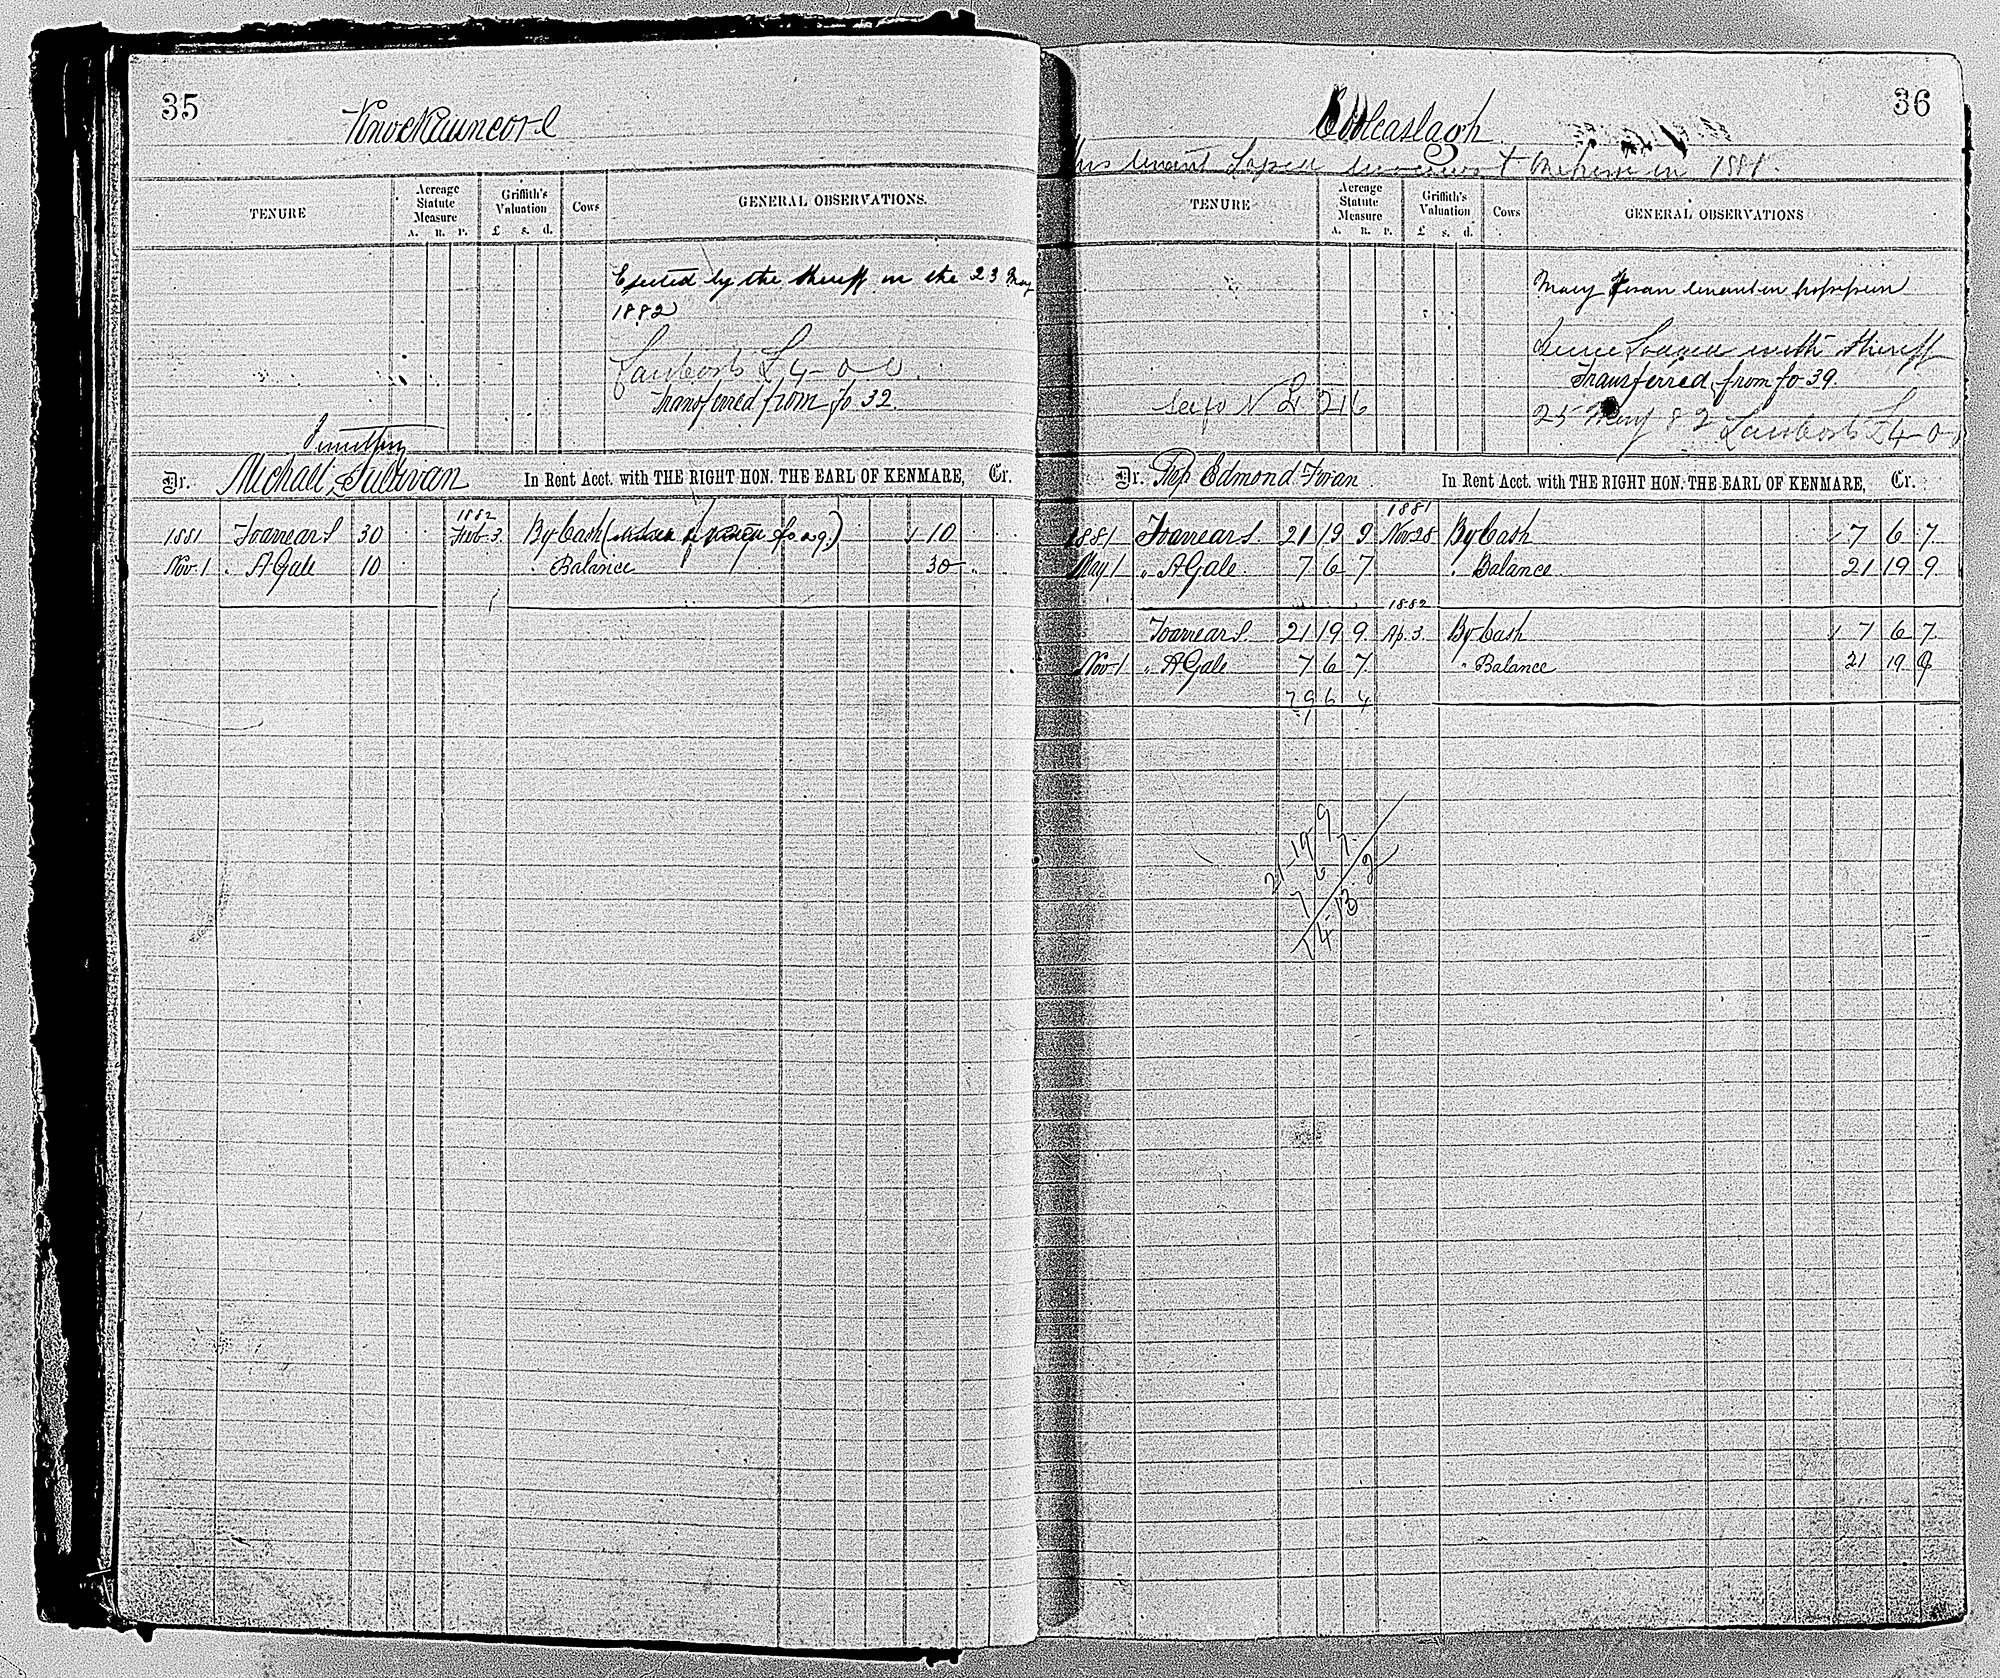 35
Knockauncore
TENURE
Acreage Statute Measure
A. R. P.
Griffith's Valuation
£ s. d.
Cows
GENERAL OBSERVATIONS.
Ejected by the Sheriff on the 23 May
1882
£4-0-0
Transferred from fo 32.
Timothy
Dr. Michael Sullivan In Rent Acct. with THE RIGHT HON. THE EARL OF KENMARE, Cr.
1881 To arrears 30 1882 Feb. 3. By Cash 10
Nov. 1 " A Gale 10 " Balance 30 "
36
Coolcaslagh
this tenant in 1881.
TENURE
Acreage Statute Measure
A. R. P.
Griffith's Valuation
£ s. d.
Cows
GENERAL OBSERVATIONS
Mary Foran tenant in possession
Lodged with Sheriff
Transferred from fo 39.
See fo 216
25 May 82 £4-0-0
Dr. Reps Edmond Foran In Rent Acct. with THE RIGHT HON. THE EARL OF KENMARE, Cr.
1881 To arrears 21 19 9 1881 Nov 28 By Cash 7 6 7
May 1 " A Gale 7 6 7 " Balance 21 19 9
To arrears 21 19 9 1882 Ap. 3. By Cash 7 6 7
Nov 1 " A Gale 7 6 7 " Balance 21 19 9
29 6 4
21 19 9
7 6 7
14 13 2